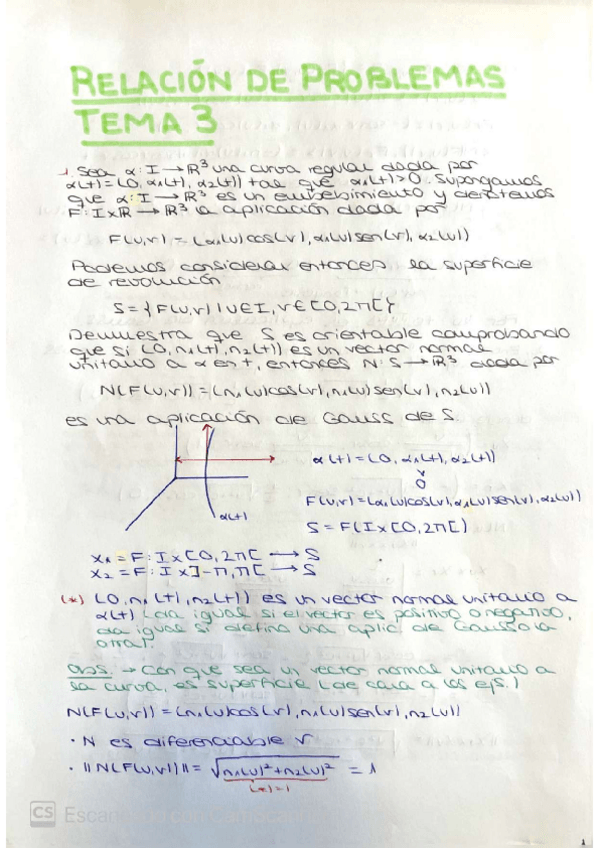 RELACIÓN DE PROBLEMAS
TEMA 3
1. Sea α: I → R³ una curva regular dada por
α(t) = (0, α₁(t), α₂(t)) tal que α₁(t) > 0. Supongamos
que α: I → R³ es un embebimiento y definimos
F: I×R → R³ la aplicación dada por
F(u,v) = (α₁(u)cos(v), α₁(u)sen(v), α₂(u))
Podemos considerar entonces la superficie
de revolución
S = {F(u,v) | u∈I, v∈[0,2π[}
Demuestra que S es orientable comprobando
que si (0, n₁(t), n₂(t)) es un vector normal
unitario a α en t, entonces N: S → R³ dada por
N(F(u,v)) = (n₁(u)cos(v), n₁(u)sen(v), n₂(u))
es una aplicación de Gauss de S.
α(t) = (0, α₁(t), α₂(t))
v
0
F(u,v) = (α₁(u)cos(v), α₁(u)sen(v), α₂(u))
α(t)
S = F(I×[0,2π[)
X₁ = F: I×[0,2π[ → S
X₂ = F: I×]-π,π[ → S
(*) (0, n₁(t), n₂(t)) es un vector normal unitario a
α(t) (da igual si el vector es positivo o negativo,
da igual si defino una aplic. de Gauss o la
otra).
Obs. → Con que sea un vector normal unitario a
la curva, es superficie (de cara a los ejs.)
N(F(u,v)) = (n₁(u)cos(v), n₁(u)sen(v), n₂(u))
· N es diferenciable ✓
· ||N(F(u,v))|| = √n₁(u)²+n₂(u)² = 1
(*)=1
CS
1